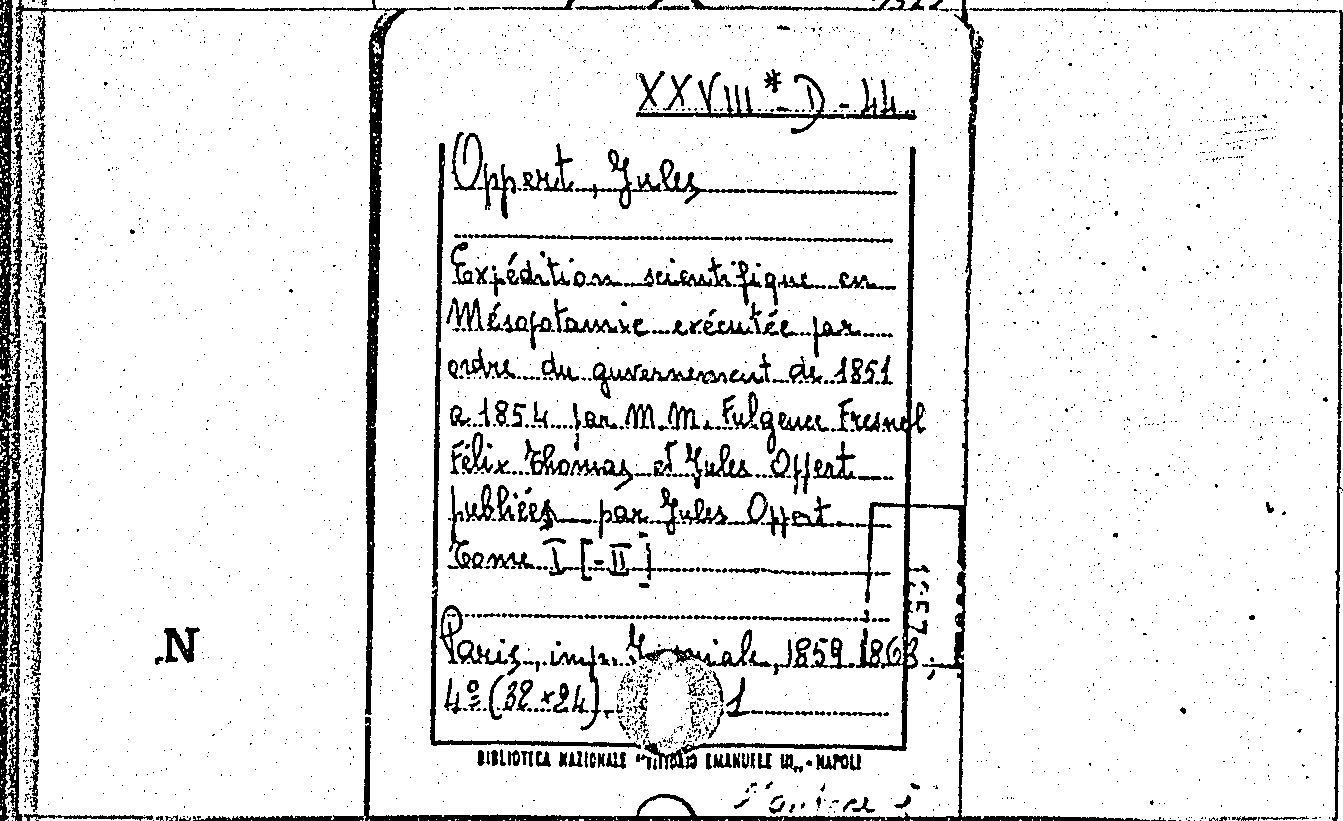 XXVIII * D - 44
Oppert, Jules
Expédition scientifique en
Mésopotamie exécutée par
ordre du guvernement de 1851
a 1854 par M.M. Fulgence Fresnel
Félix Thomas et Jules Oppert
publiées par Jules Oppert
Tome I [-II]
Paris, imp. Imperiale, 1859 1863
4º (32 × 24). 1
N
BIBLIOTECA NAZIONALE "VITTORIO EMANUELE III" - NAPOLI